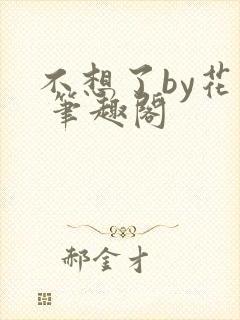 不想了by花
笔趣阁
郝金才